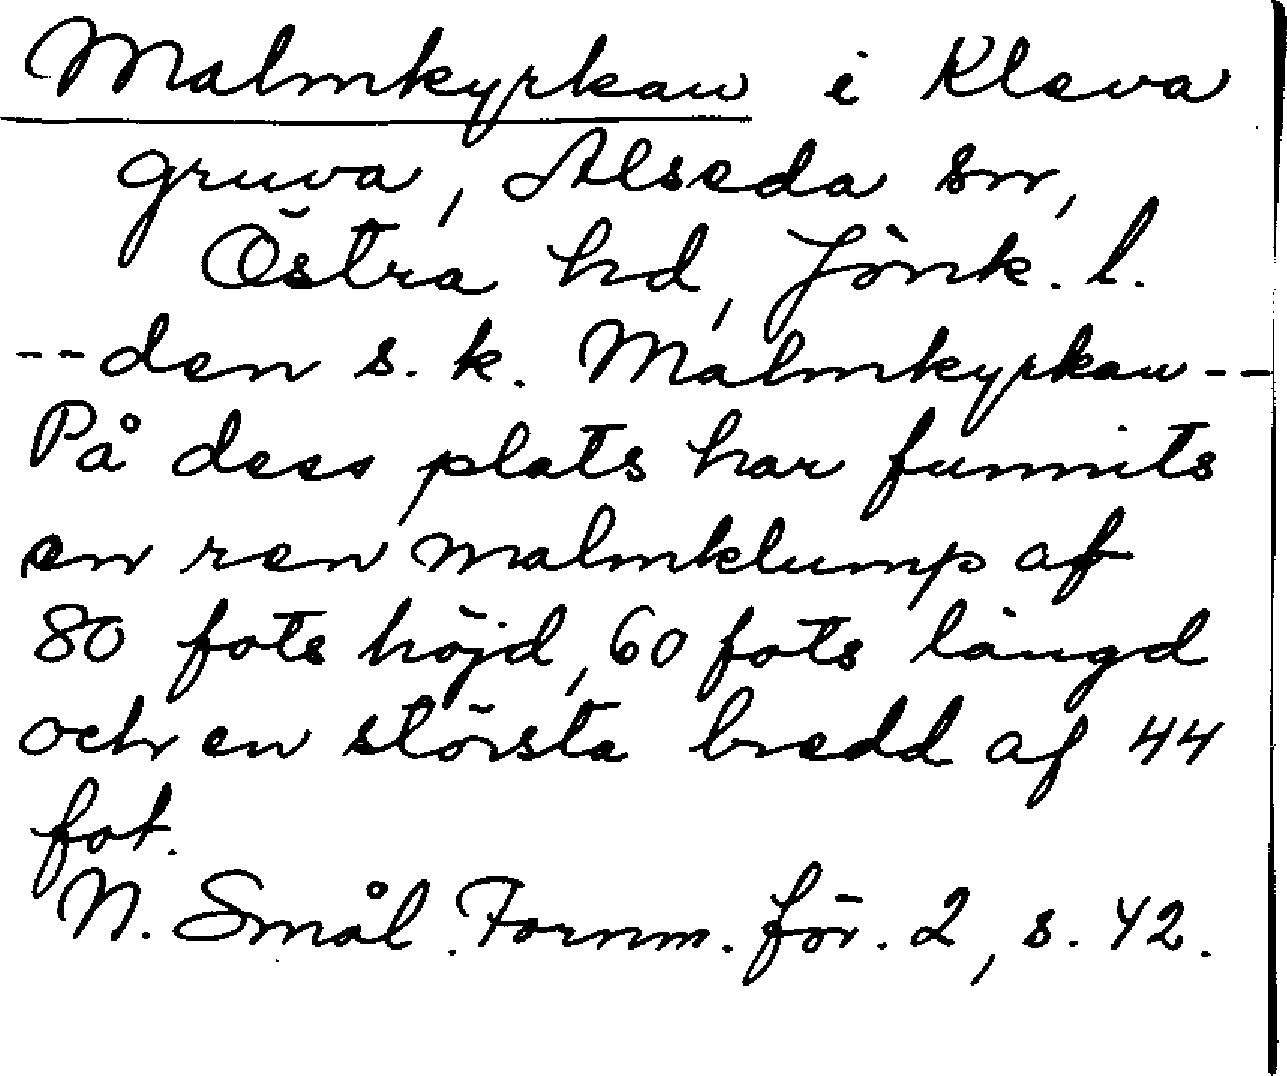 Malmkyrkan i Kleva
gruva, Alseda sn,
Östra hd, Jönk. l.
--den s. k. Malmkyrkan--
På dess plats har funnits
en ren malmklump af
80 fots höjd, 60 fots längd
och en största bredd af 44
fot.
N. Smål. Fornm. för. 2, s. 42.